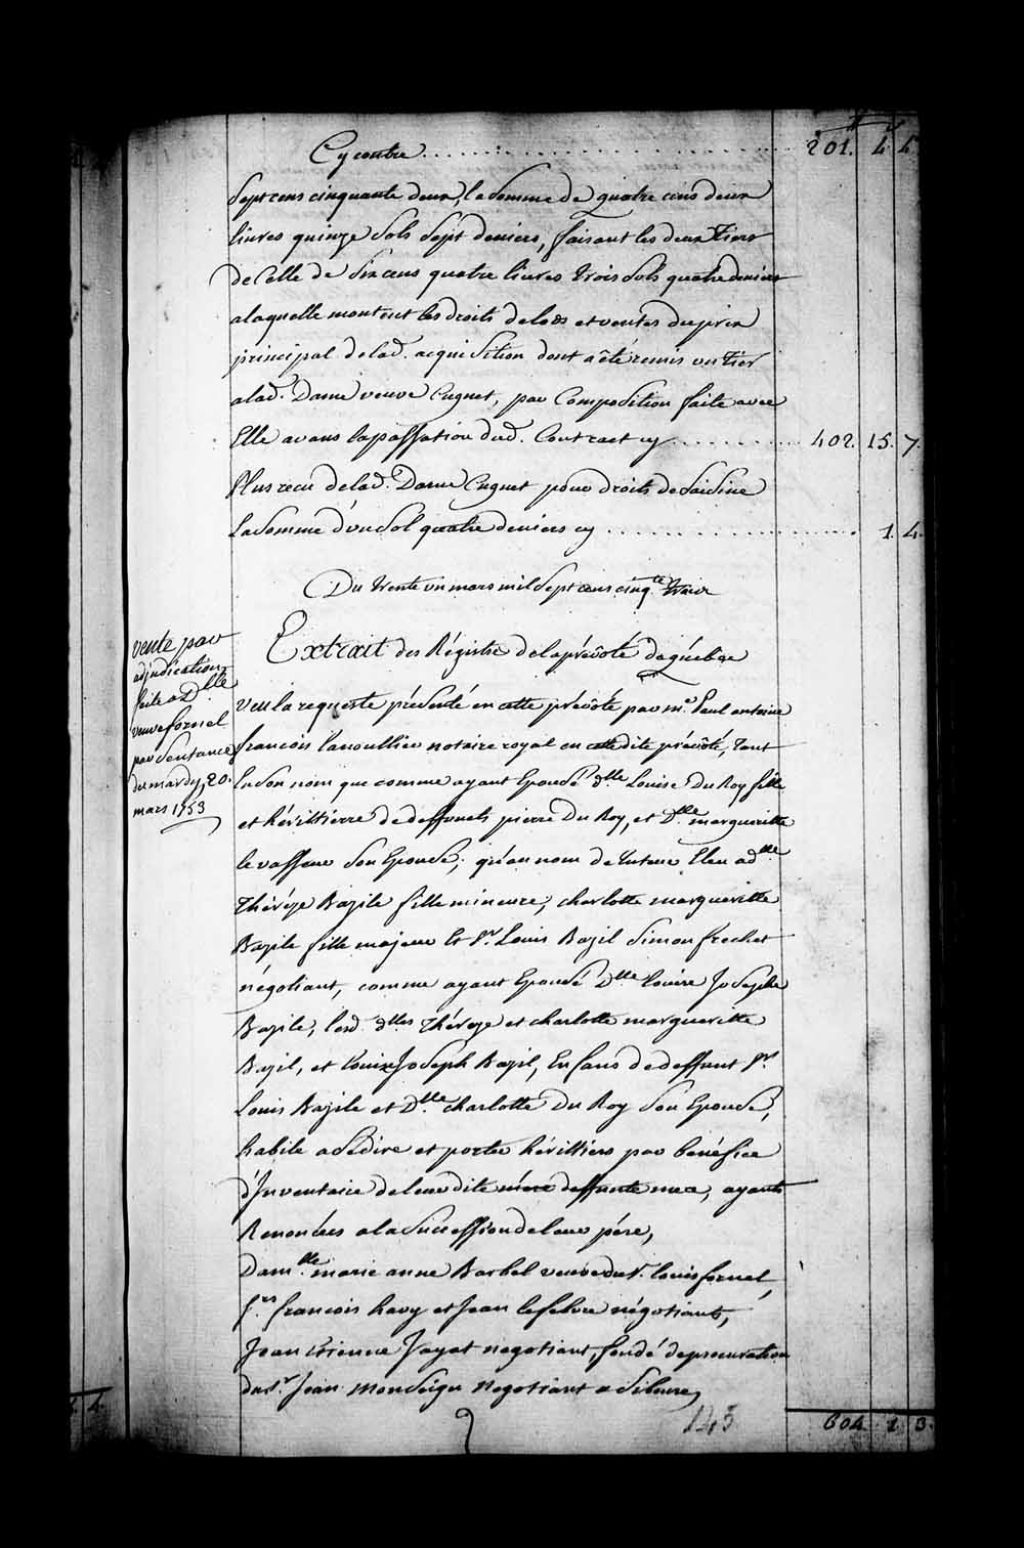 Cy contre . . . . . . . . . . . . . . . . . . . . . . 201. 4. 4.
Sept cens cinquante deux, la Somme de quatre cens deux
livres quinze Sols Sept deniers, faisant les deux Tiers
de Celle de Six cens quatre livres trois Sols quatre deniers
alaquelle montent les droits delods et ventes duprix
principal delad. acquisition dont a été remis un Tier
alad. Dame veuve Cugnet, par Composition faite avec
Elle avans lapassation dud. Contract cy . . . . . . . . . . 402. 15. 7.
Plus recu delad. Dame Cugnet pour droits de Saisine
La Somme d'un Sol quatre deniers cy . . . . . . . . . . . . . . . 1. 4.
Du trente un mars mil Sept cens cinqte. trois
Extrait des Régistre delaprévôté dequébec
vente par
adjudication
faite a Dlle
veuve fornel
par Sentance
du mardy, 20.
mars 1753
veu la requeste présenté en cette prévôté par me. Paul antoine
francois Lanoullier notaire royal en cette dite prévôté, tant
En Son nom que comme ayant Epousé dlle Louise Du Roy fille
et hérittierre de deffunts pierre Du Roy, et Dlle. margueritte
levasseur Son Epouse; qu'au nom de tuteur Eleu a dlle.
Thérèze Bazile fille mineure, charlotte margueritte
Bazile fille majeur Et Sr. Louis Bazil Simon frechet
négotiant, comme ayant Epousé Dlle louise Josephe
Bazile, lesd. dlles thérèze et charlotte margueritte
Bazil, et louise Joseph Bazil, Enfans de deffunt Sr.
Louis Bazile et Dlle. charlotte Du Roy Son Epouse,
habile a Sedire et porter hérittiers par benéfice
d'Inventaire deleur dite mère, ayants
Renoncées alaSuccession deleur père,
Damlle. marie anne Barbel veuve du Sr. louis fornel,
Srs. francois havy et Jean lefebvre négotiants,
Jean Etienne Jayat negotiant, fondé deprocuration
du Sr. Jean Monseigu Negotiant a
145
604. 1. 3.